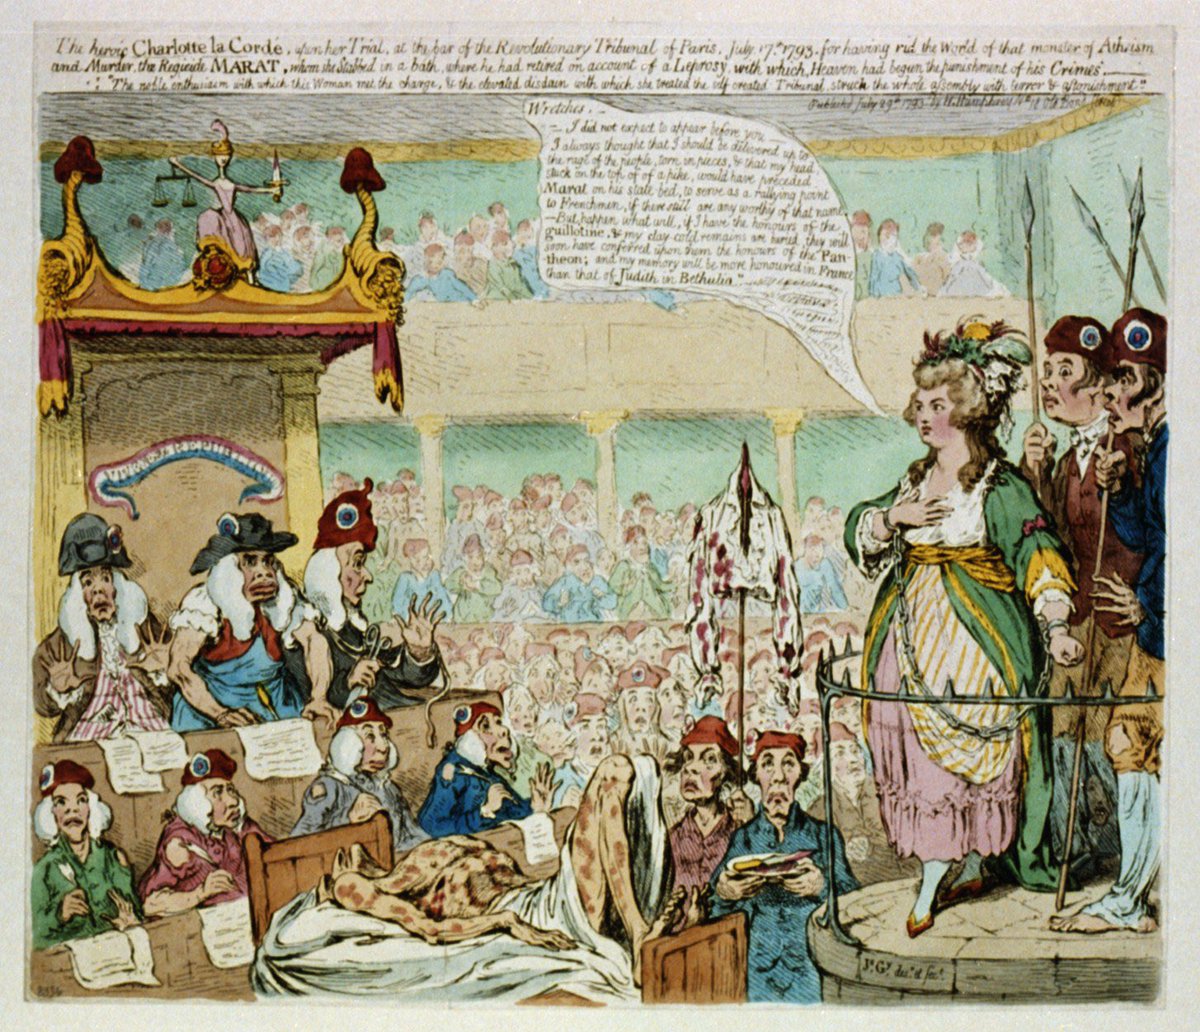 The heroic Charlotte la Cordé, upon her Trial, at the bar of the Revolutionary Tribunal of Paris, July 17.th 1793. for having rid the World of that monster of Atheism
and Murder, the Regicide MARAT, whom she Stabbed in a bath, where he had retired on account of a Leprosy, with which, Heaven had begun the punishment of his Crimes.
"The noble enthusiasm with which this Woman met the charge, & the elevated disdain with which she treated the self created Tribunal, struck the whole assembly with terror & astonishment."
Published July 29th 1793. by H. Humphrey No 18 Old Bond Street
Wretches,
— I did not expect to appear before you
I always thought that I should be delivered up to
the rage of the people, torn in pieces, & that my head
stuck on the top of of a pike, would have preceded
Marat on his state bed, to serve as a rallying point
to Frenchmen, if there still are any worthy of that name
— But, happen what will, if I have the honours of the
guillotine, & my clay cold remains are buried, they will
soon have conferred upon them the honours of the Pan-
theon; and my memory will be more honoured in France
than that of Judith in Bethulia."
Js. Gy. des.n et fect.